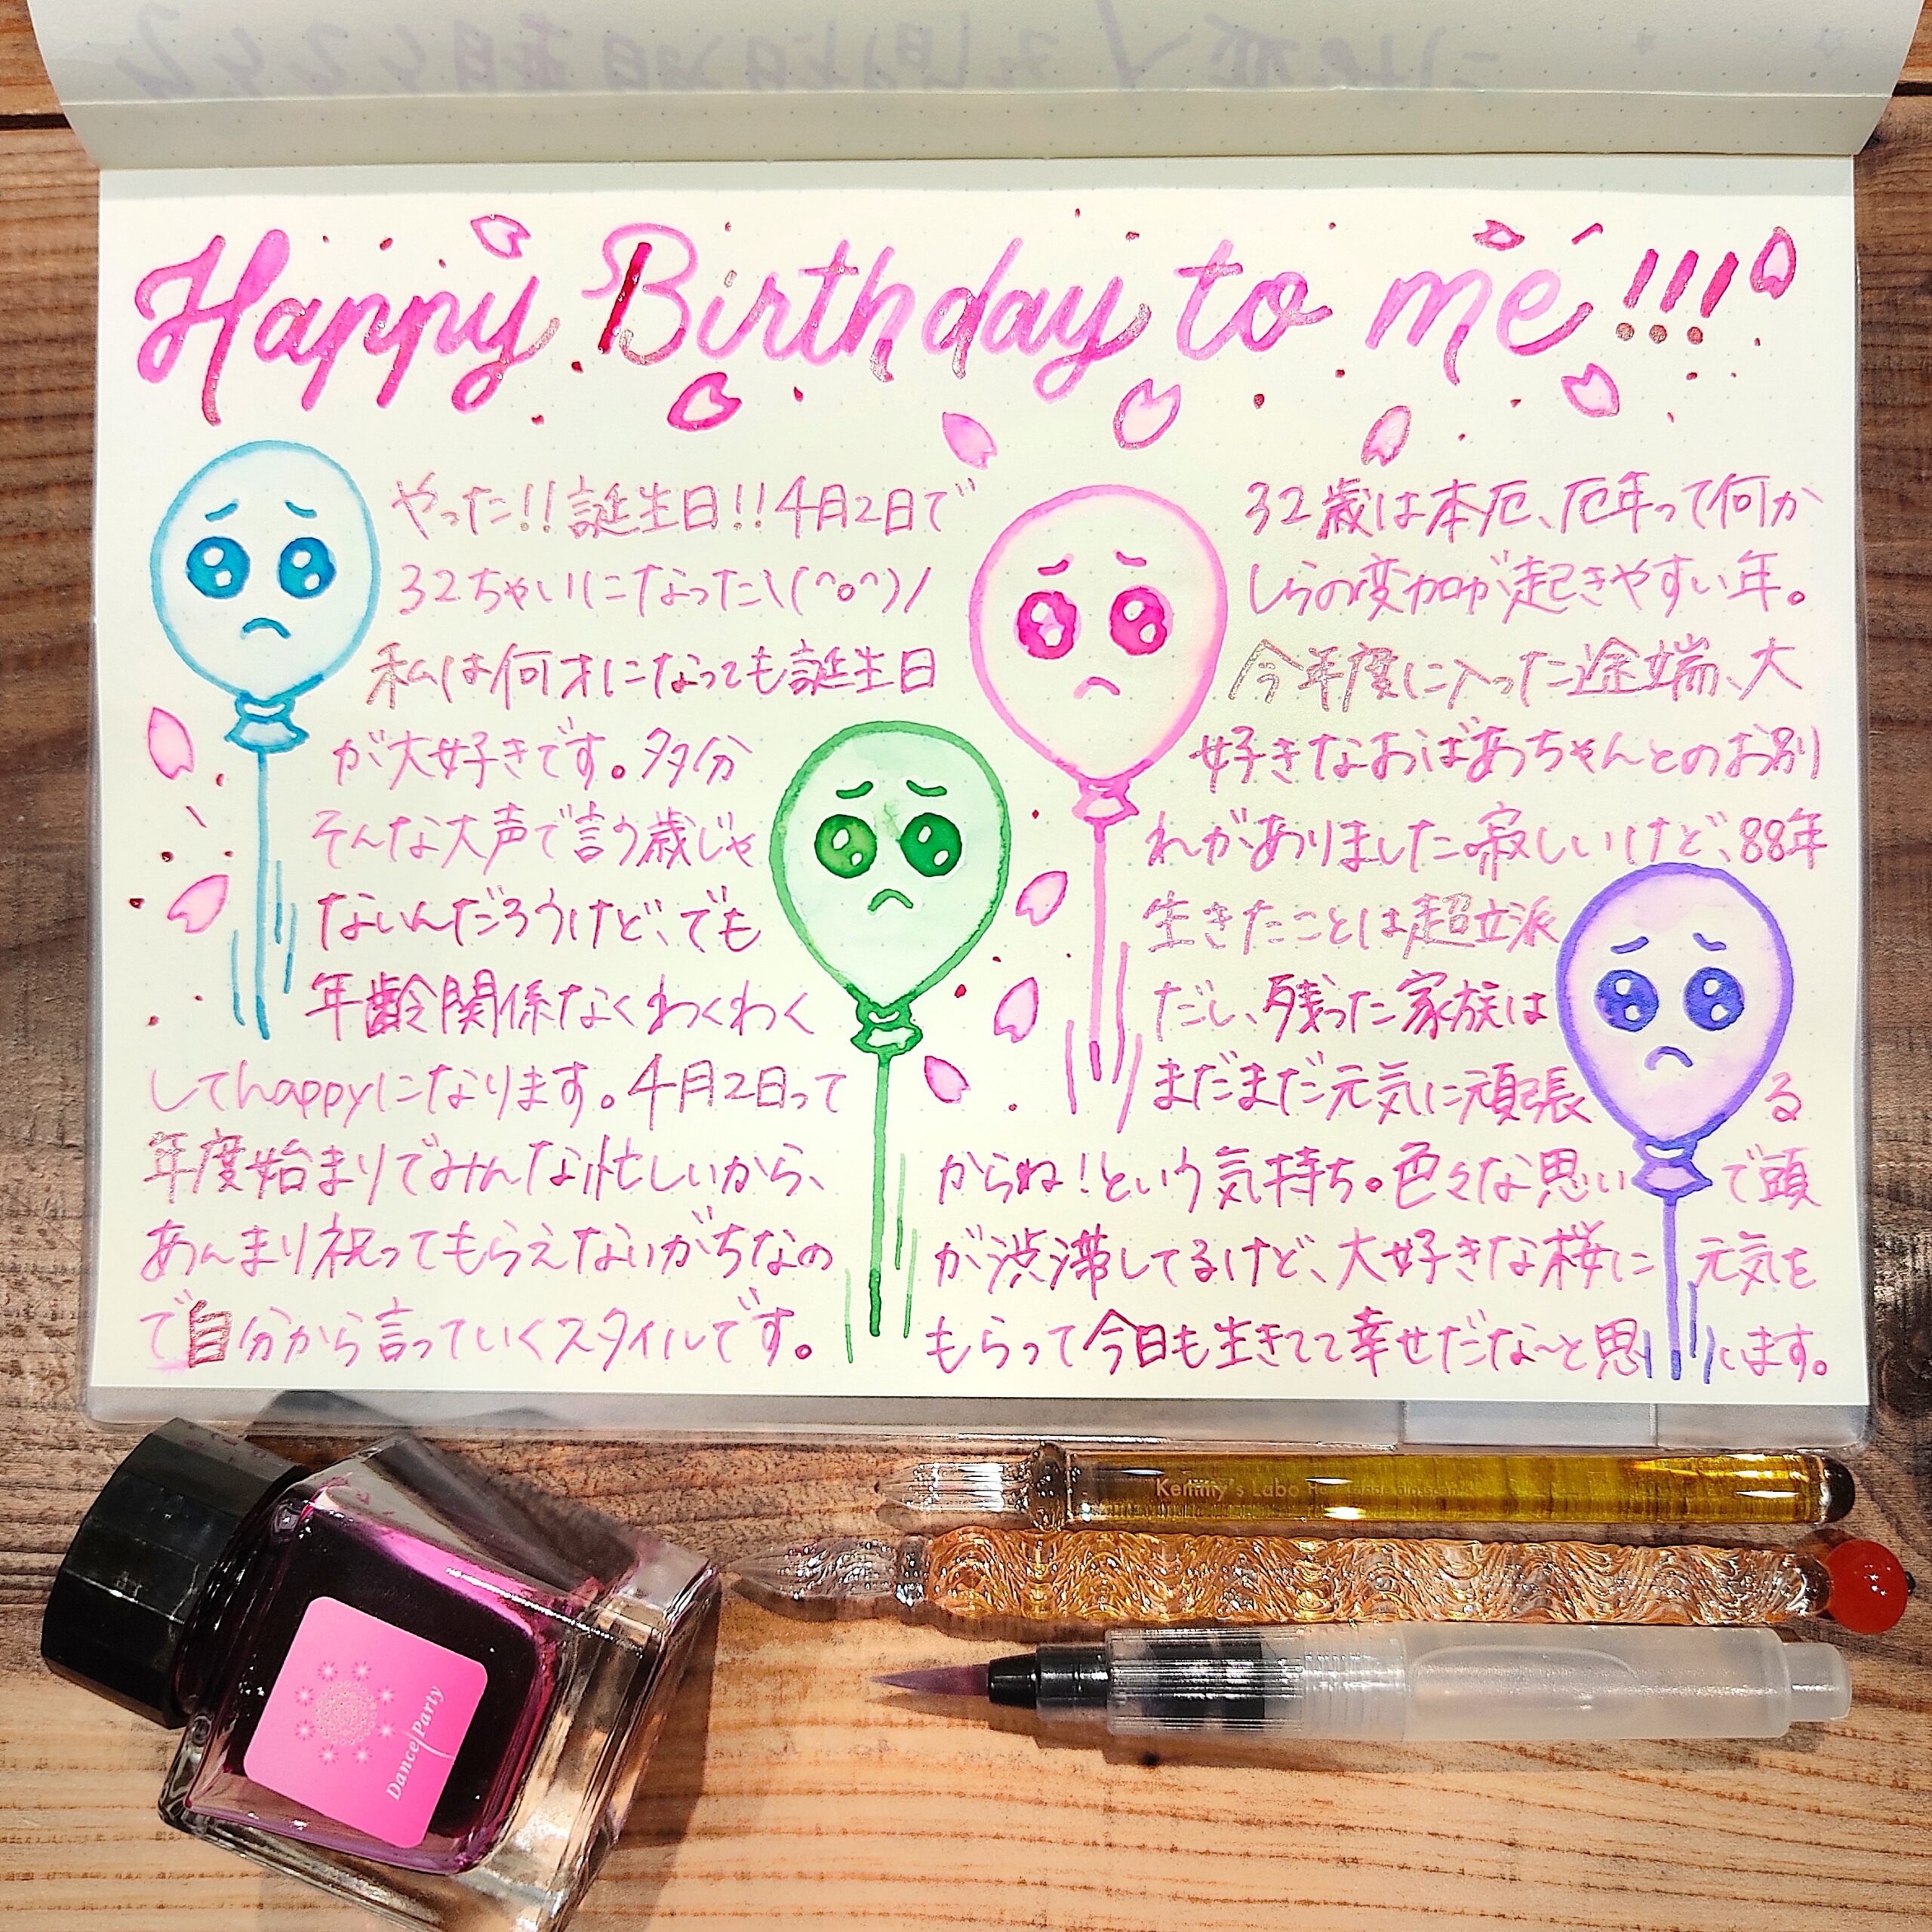 Happy Birthday to me!!!
やった!!誕生日!!4月2日で
32ちゃいになった\(^o^)/
私は何才になっても誕生日
が大好きです。多分
そんな大声で言う歳じゃ
ないんだろうけど、でも
年齢関係なくわくわく
してhappyになります。4月2日って
年度始まりでみんな忙しいから、
あんまり祝ってもらえないがちなの
で自分から言っていくスタイルです。
32歳は本厄、厄年って何か
しらの変加が起きやすい年。
今年度に入った途端、大
好きなおばあちゃんとのお別
れがありました寂しいけど、88年
生きたことは超立派
だし、残った家族は
まだまだ元気に頑張る
からね!という気持ち。色々な思いで頭
が渋滞してるけど、大好きな桜に元気を
もらって今日も生きてて幸せだな~と思います。
Kemmy's Labo
Dance Party